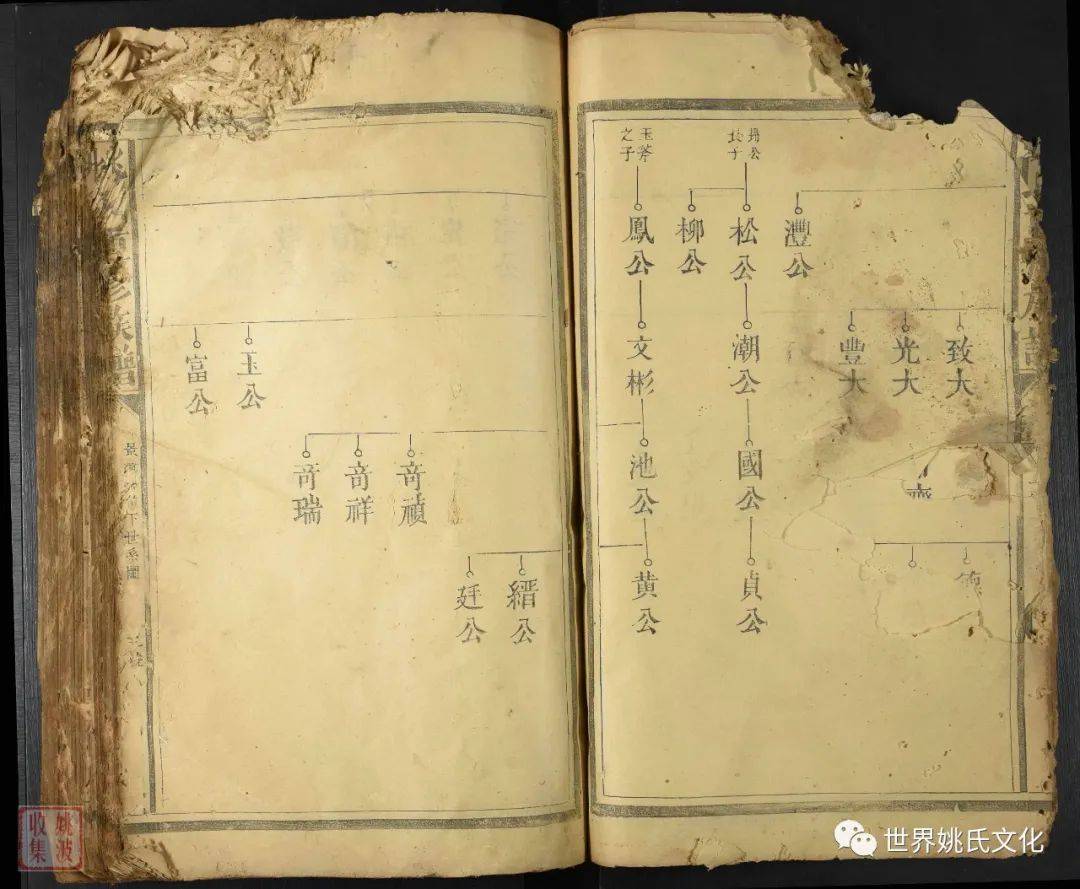 灃公
致大
光大
豐大
長子
松公
柳公
潮公
國公
貞公
玉斧
之子
鳳公
文彬
池公
黃公
縉公
廷公
奇禎
奇祥
奇瑞
玉公
富公
族譜
下世系圖
姚波
收集
世界姚氏文化